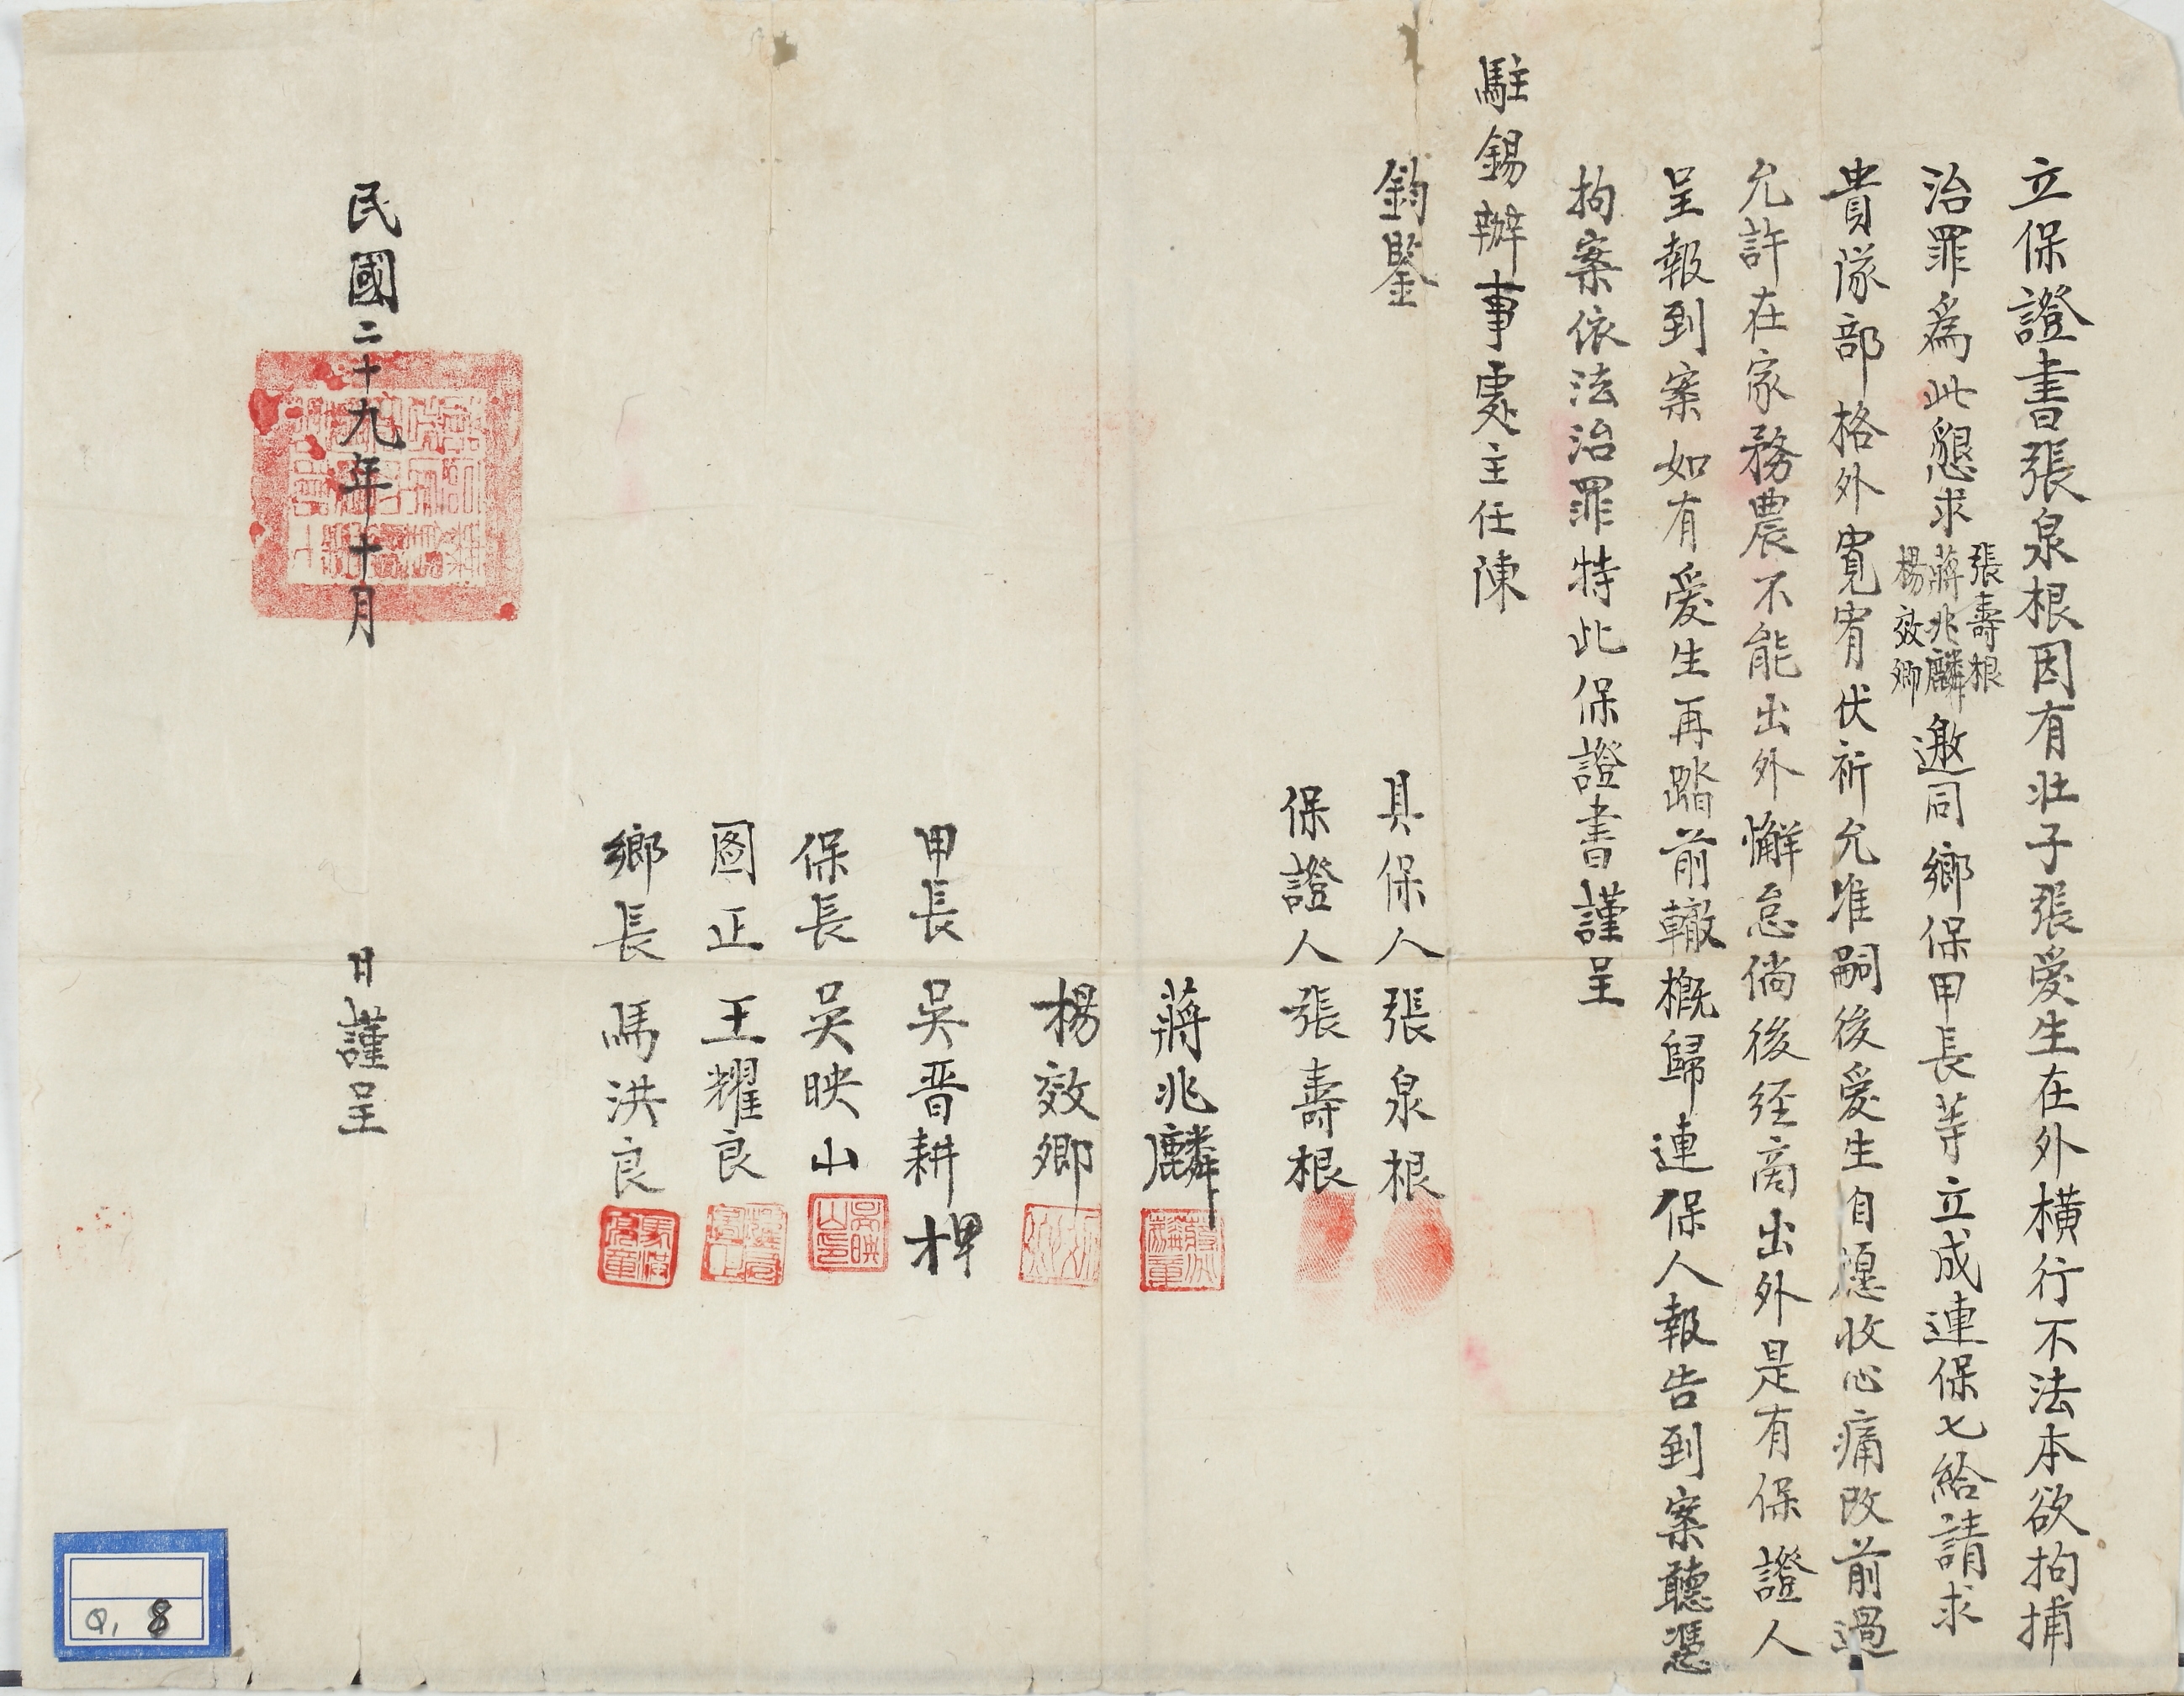 立保證書張泉根因有壯子張愛生在外橫行不法本欲拘捕
治罪爲此懇求張壽根蔣兆麟楊效卿邀同鄉保甲長等立成連保七給請求
貴隊部格外寬宥伏祈允准嗣後愛生自愿收心痛改前過
允許在家務農不能出外懈怠倘後經商出外是有保證人
呈報到案如有愛生再踏前轍概歸連保人報告到案聽憑
拘案依法治罪特此保證書謹呈
駐錫辦事處主任陳
鈞鑒
具保人張泉根
保證人張壽根
蔣兆麟
楊效卿
甲長 吳晋耕 押
保長 吳映山
吳映山印
圖正 王耀良
鄉長 馮洪良
民國二十九年十月 日謹呈
Q, 8